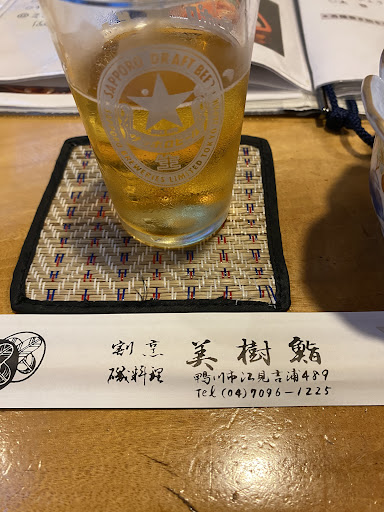 SAPPORO DRAFT BEER
割烹
磯料理
美樹鮨
鴨川市江見吉浦489
Tel (04)7096-1225